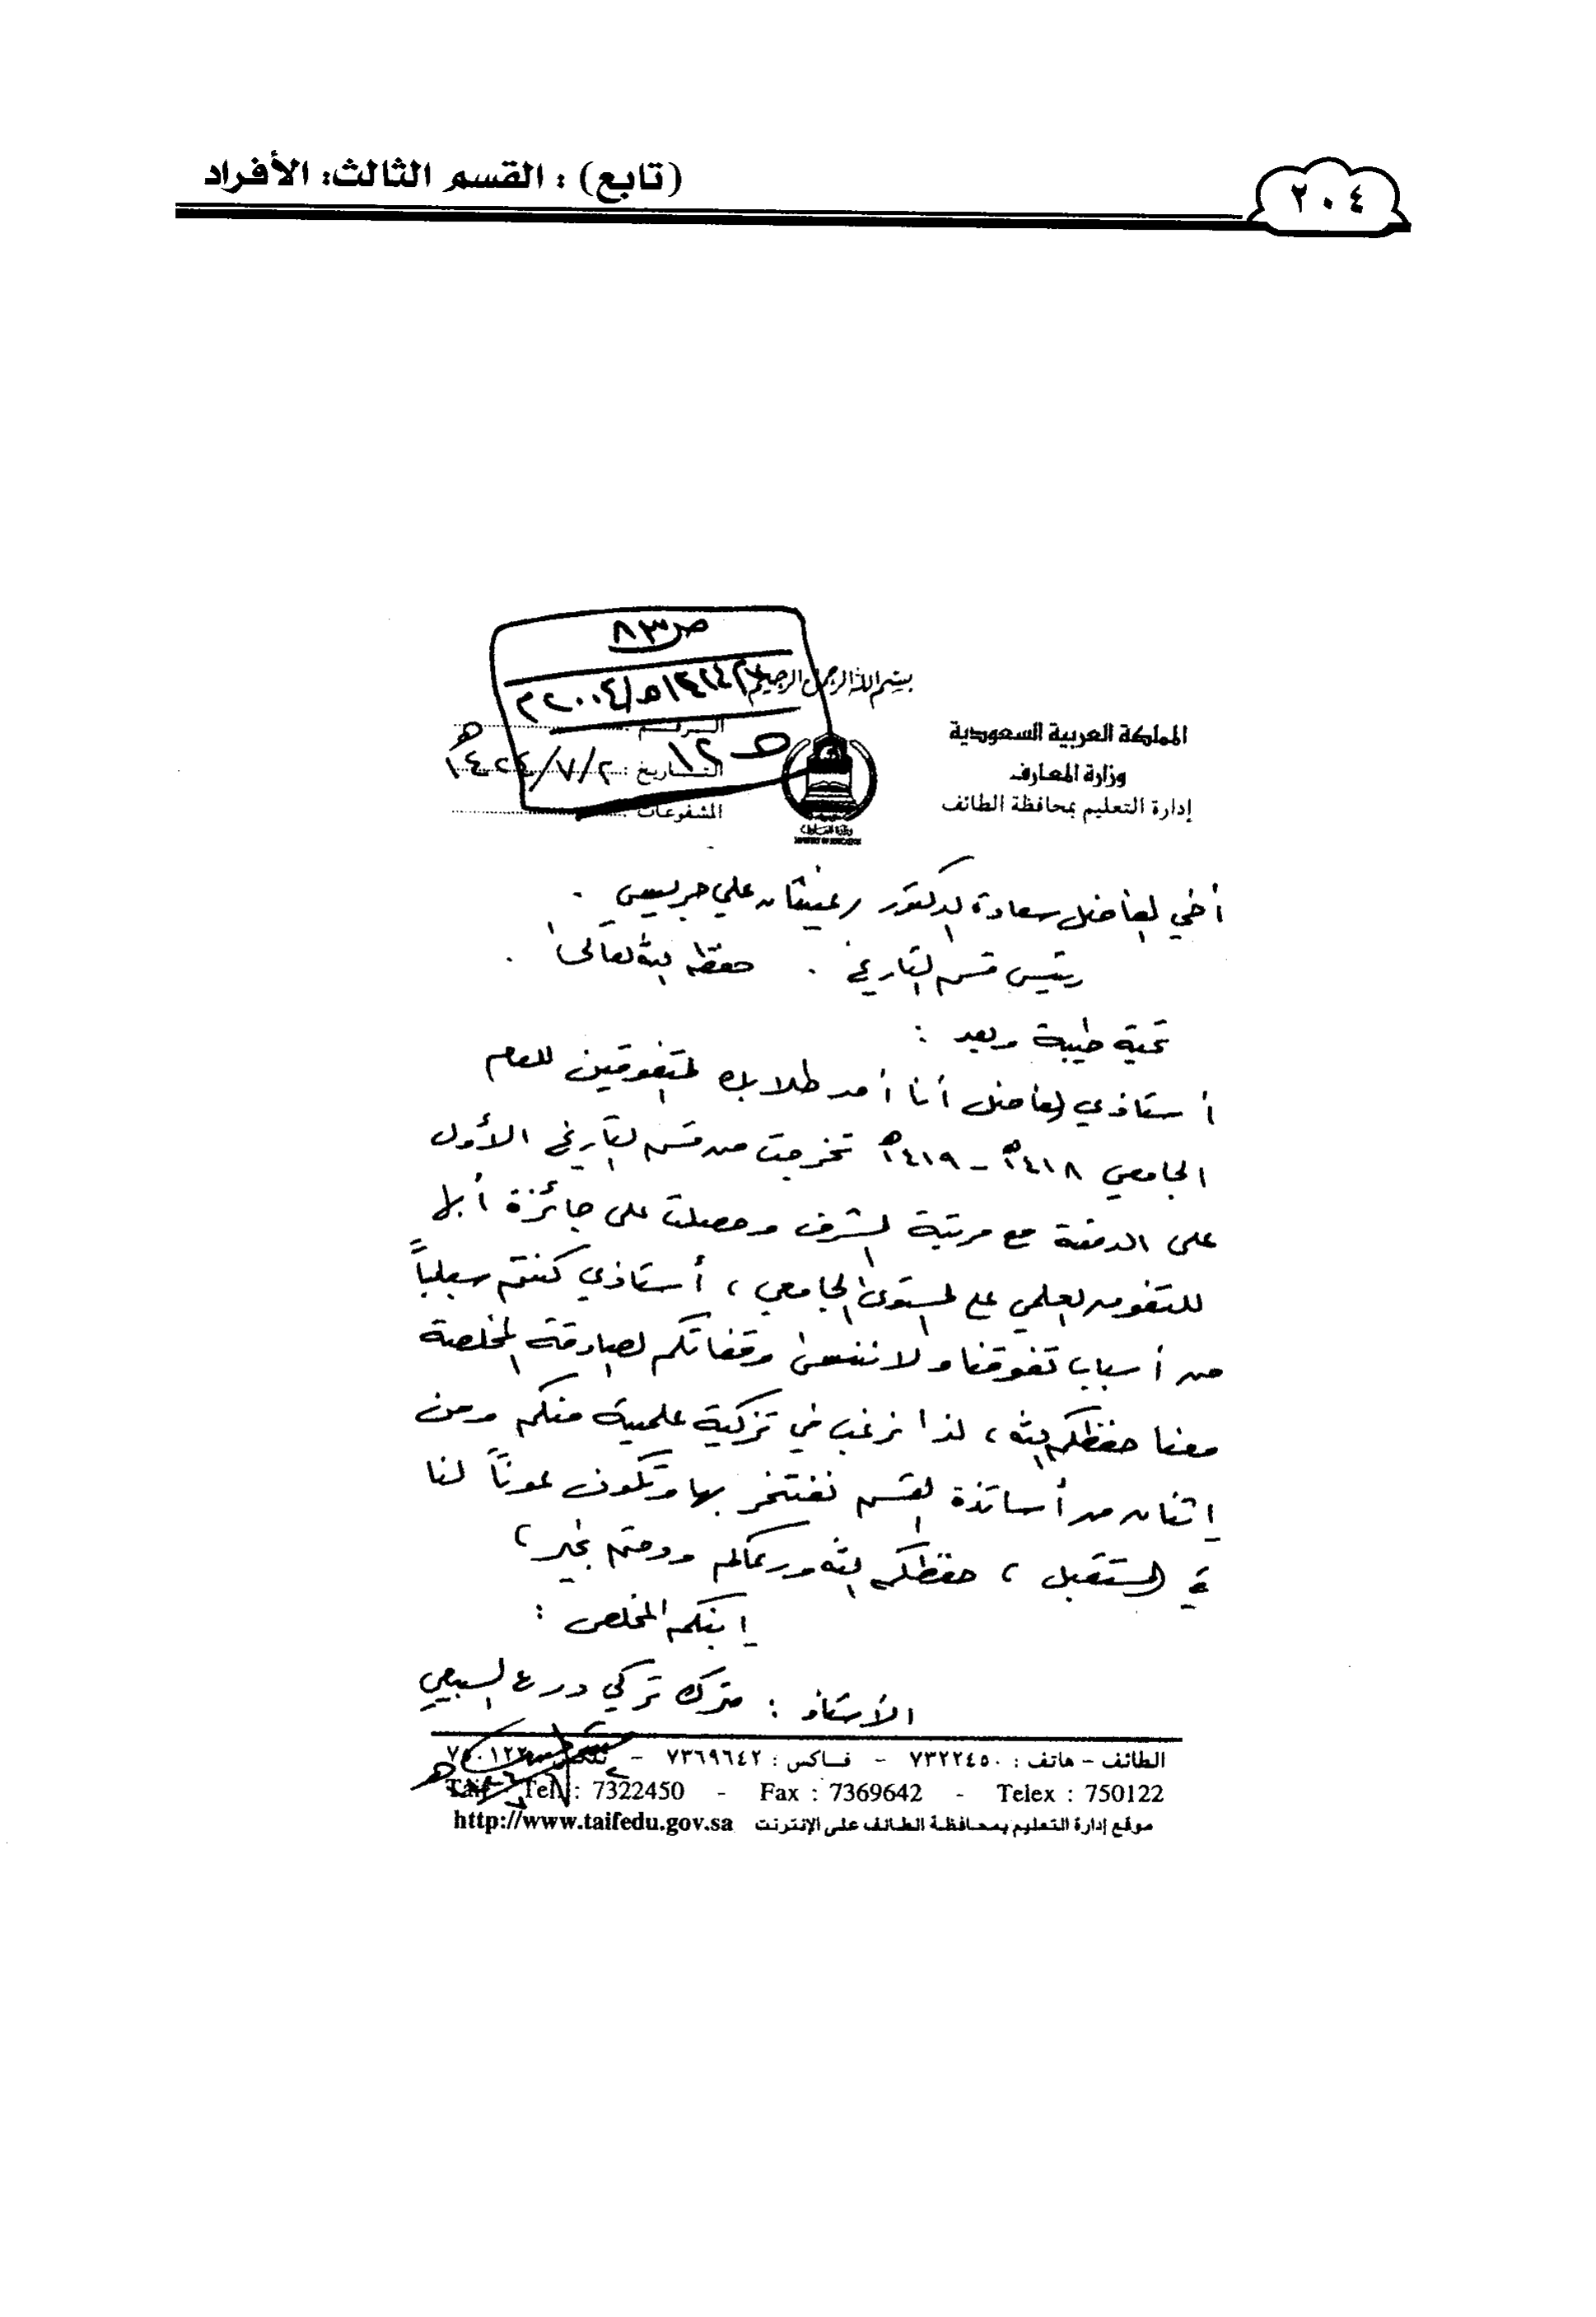 (تابع) : القسم الثالث: الأفراد
٢٠٤
ص ٨٣
بسم الله الرحمن الرحيم
١٤٢٤هـ/٢٠٠٤م
ص ١٢
المملكة العربية السعودية
وزارة المعارف
إدارة التعليم بمحافظة الطائف
الرقم :
التاريخ : ٢/٧/١٤٢٤هـ
المشفوعات :
أخي الفاضل سعادة الدكتور / غيثان علي جريس .
رئيس قسم التاريخ . حفظه الله تعالى .
تحية طيبة وبعد :
أستاذي الفاضل أنا أحد طلابك المتفوقين للعام
الجامعي ١٤١٨هـ - ١٤١٩هـ تخرجت من قسم التاريخ الأول
على الدفعة مع مرتبة الشرف وحصلت على جائزة أبها
للتفوق العلمي على المستوى الجامعي ، أستاذي كنتم سبباً
من أسباب تفوقنا ولا ننسى وقفاتكم الصادقة المخلصة
معنا حفظكم الله ، لذا نرغب في تزكية علمية منكم ومن
إثنان من أساتذة القسم نفتخر بها وتكون عوناً لنا
في المستقبل ، حفظكم الله ورعاكم ودمتم بخير ،
إبنكم المخلص :
الأستاذ : مترك تركي درع السبيعي
الطائف - هاتف : ٧٣٢٢٤٥٠ - فاكس : ٧٣٦٩٦٤٢ - تلكس : ٧٥٠١٢٢
Taif - Tel : 7322450 - Fax : 7369642 - Telex : 750122
موقع إدارة التعليم بمحافظة الطائف على الإنترنت http://www.taifedu.gov.sa